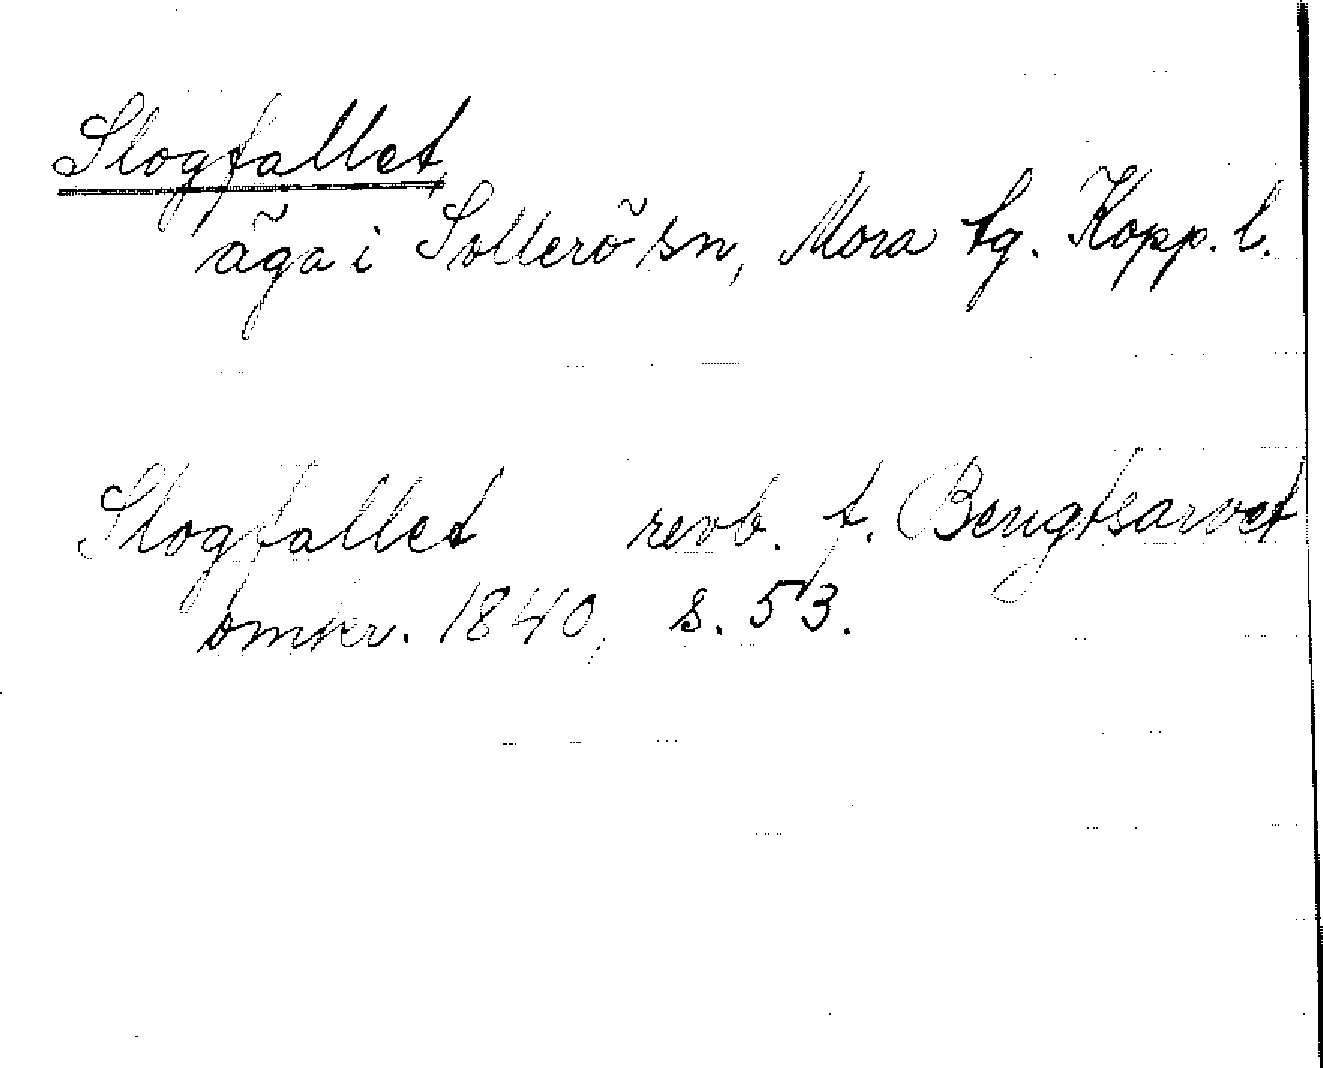 Slogfallet,
äga i Sollerö sn, Mora tg. Kopp. l.
Slogfallet revb. t. Bengtsarvet
omkr. 1840, s. 53.